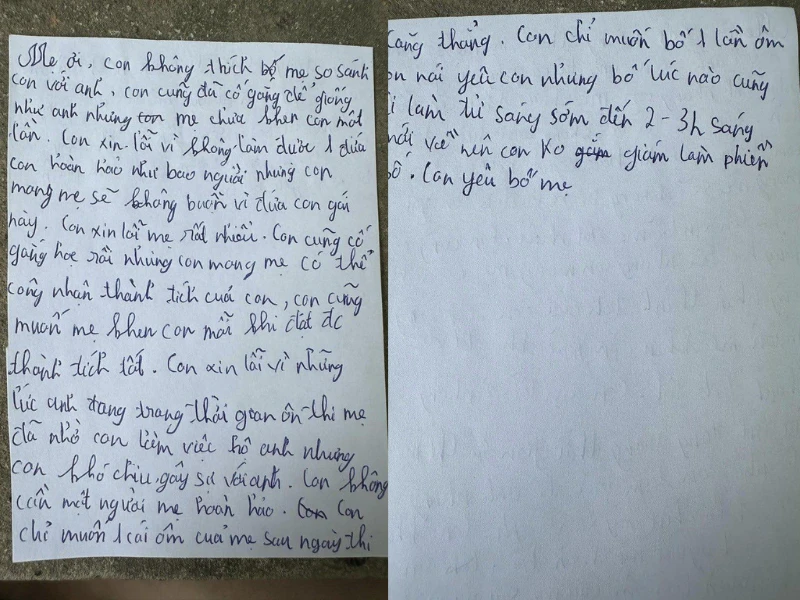 Mẹ ơi, con không thích bố mẹ so sánh
con với anh, con cũng đã cố gắng để giống
như anh nhưng mẹ chưa khen con một
lần. Con xin lỗi vì không làm được 1 đứa
con hoàn hảo như bao người nhưng con
mong mẹ sẽ không buồn vì đứa con gái
này. Con xin lỗi mẹ rất nhiều. Con cũng cố
gắng học rồi nhưng con mong mẹ có thể
công nhận thành tích của con, con cũng
muốn mẹ khen con mỗi khi đạt đc
thành tích tốt. Con xin lỗi vì những
lúc anh đang trong thời gian ôn thi mẹ
đã nhờ con làm việc hộ anh nhưng
con khó chịu, gây sự với anh. Con không
cần một người mẹ hoàn hảo. Con
chỉ muốn 1 cái ôm của mẹ sau ngày thi
căng thẳng. Con chỉ muốn bố 1 lần ôm
con nói yêu con nhưng bố lúc nào cũng
đi làm từ sáng sớm đến 2-3h sáng
mới về nên con ko giám làm phiền
bố. Con yêu bố mẹ